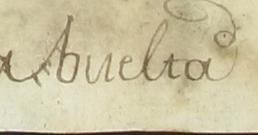 a buelta